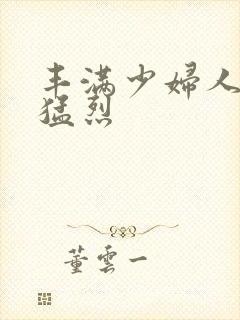 丰满少婦人
猛烈
董雲一